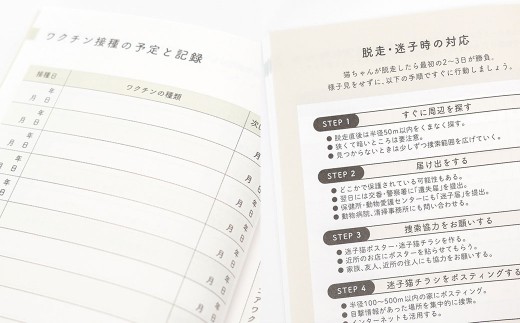 ワクチン接種の予定と記録
接種日
ワクチンの種類
年
月 日
年
月 日
年
月 日
年
月 日
年
月 日
年
月 日
月
月
月
月
脱走・迷子時の対応
猫ちゃんが脱走したら最初の2〜3日が勝負。
様子見をせずに、以下の手順ですぐに行動しましょう。
STEP 1 すぐに周辺を探す
● 脱走直後は半径50m以内をくまなく探す。
● 狭くて暗いところは要注意。
● 見つからないときは少しずつ捜索範囲を広げていく。
STEP 2 届け出をする
● どこかで保護されている可能性もある。
● 翌日には交番・警察署に「遺失届」を提出。
● 保健所・動物愛護センターにも「迷子届」を提出。
● 動物病院、清掃事務所にも問い合わせる。
STEP 3 捜索協力をお願いする
● 迷子猫ポスター・迷子猫チラシを作る。
● 近所のお店にポスターを貼らせてもらう。
● 家族、友人、近所の住人にも協力をお願いする。
STEP 4 迷子猫チラシをポスティングする
● 半径100〜500m以内の家にポスティング。
● 目撃情報があった場所を集中的に捜索。
● インターネットも活用する。